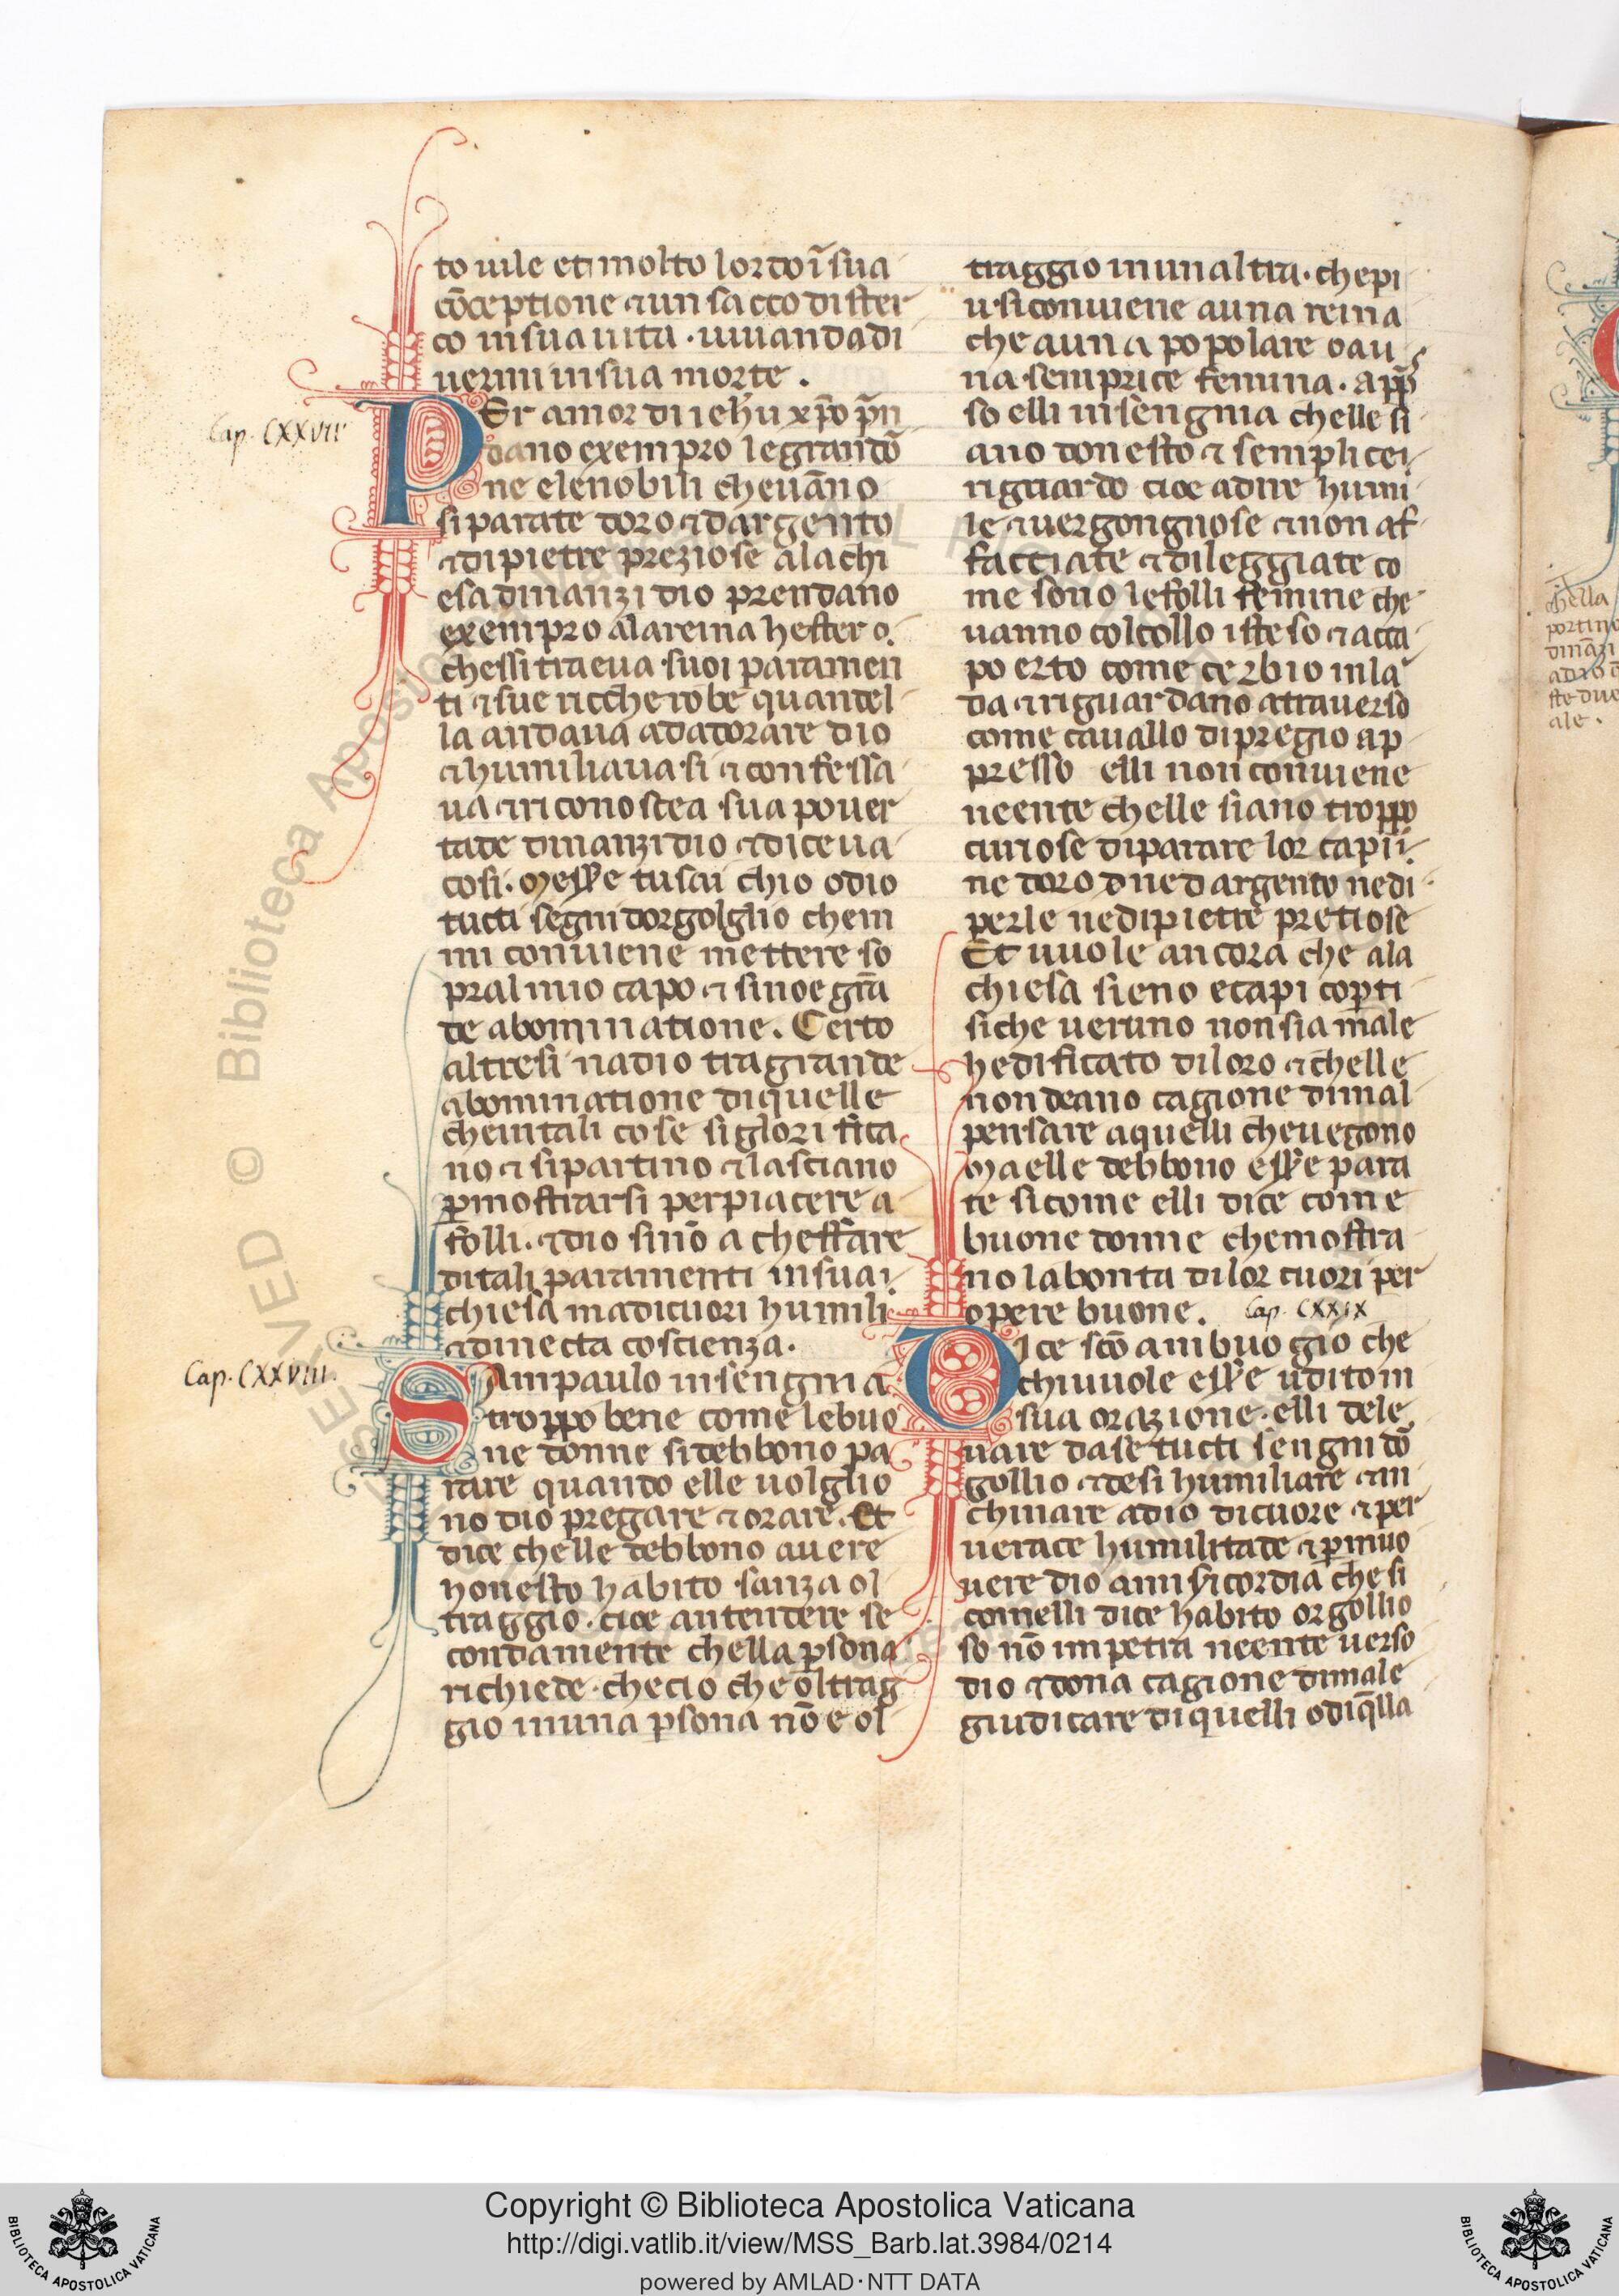 to uile et molto lordo ĩ sua
cõceptione ⁊ un sacco di ster
co in sua uita · uiuanda di
uermi in sua morte .
Cap. CXXVII
PEr amor di iehu xp̃o p̃n
dano exempro le grandõ
ne ele nobili che uãno
si parate doro ⁊ dargento
⁊ di pietre preziose ala chi
esa dinanzi dio prendano
exempro ala reina hester o.
chessi traeua suoi paramen
ti ⁊ sue ricche robe quandel
la andaua ad adorare dio
⁊ humiliaua si ⁊ confessa
ua ⁊ riconoscea sua pouer
tade dinanzi dio ⁊ diceua
cosi. Messe tu sai chio odio
tucti segni dorgolglio chem
mi conuiene mettere so
pral mio capo ⁊ sinoe grã
de abominatione. Certo
altresi nadio tragrande
abominatione di quelle
chein tali cose si glorifica
no ⁊ si partino ⁊ lasciano
ꝑ mostrarsi per piacere a
folli. ⁊ dio sinõ a cheffare
di tali paramenti in sua
chiesa ma di cuori humili
⁊ dinecta coscienza.
Cap. CXXVIII.
SAmpaulo insengnia
troppo bene come le buo
ne donne si debbono pa
rare quando elle uolglio
no dio pregare ⁊ orare. Et
dice chelle debbono auere
honesto habito sanza ol
traggio. cioe a intendere se
condamente chella ꝑsona
richiede. che cio che oltrag
gio in una ꝑsona nõ e ol
traggio in un altra. che pi
u si conuiene a una reina
che a una popolare o a u
na semprice femina. app̃s
so elli insengnia chelle si
ano donesto ⁊ semplice
riguardo cioe a dire humi
le ⁊ uergongnose ⁊ non af
facciate ⁊ dileggiate co
me sono le folli femine che
uanno col collo isteso ⁊ a ca
po erto come cerbio in la
da ⁊ riguardano atrauerso
come cauallo di pregio ap
presso elli non conuiene
neente chelle siano troppo
curiose di parare lor capii.
ne doro ne dargento ne di
perle ne di pietre pretiose
Et uuole ancora che ala
chiesa sieno e capi coꝑti
siche ueruno non sia male
hedificato di loro ⁊ chelle
non deano cagione dimal
pensare aquelli che uegono
Ma elle debbono esse para
te sicome elli dice come
buone donne che mostra
no la bonta di lor cuori per
opere buone.
Cap. CXXIX
DIce scõ ambuogio che
chi uuole esse udito in
sua orazione. elli dele
uare da se tucti sengni dõ
gollio ⁊ desi humiliare ⁊ in
chinare a dio di cuore ⁊ per
uerace humilitade ⁊ ꝑ muo
uere dio a misicordia che si
comelli dice habito orgollio
so nõ impetra neente uerso
dio ⁊ dona cagione dimale
giudicare di quelli o di q̃lla
chella
portino
dinãzi
a dio
ste due
ale .
Copyright © Biblioteca Apostolica Vaticana
http://digi.vatlib.it/view/MSS_Barb.lat.3984/0214
powered by AMLAD·NTT DATA
BIBLIOTECA APOSTOLICA VATICANA
BIBLIOTECA APOSTOLICA VATICANA